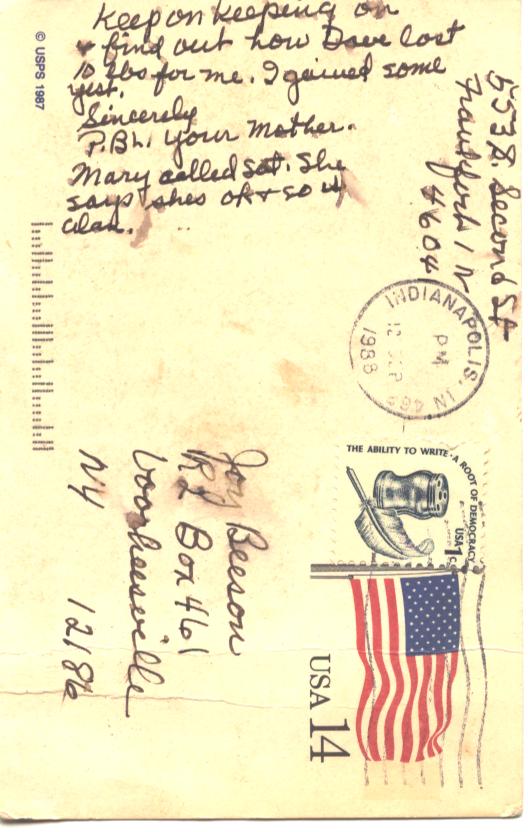 Keep on keeping on
& find out how Dave lost
10 lbs for me. I gained some
yest.
Sincerely
P.BL. your Mother.
Mary called Sat. She
says shes ok & so is
Alan.
© USPS 1987
553 S. Second St
Frankfort IN
4604
INDIANAPOLIS, IN 462
PM
12 SEP
1988
THE ABILITY TO WRITE · A ROOT OF DEMOCRACY
USA 1c
USA 14
Joy Beeson
R2 Box 461
Voorheesville
NY 12186